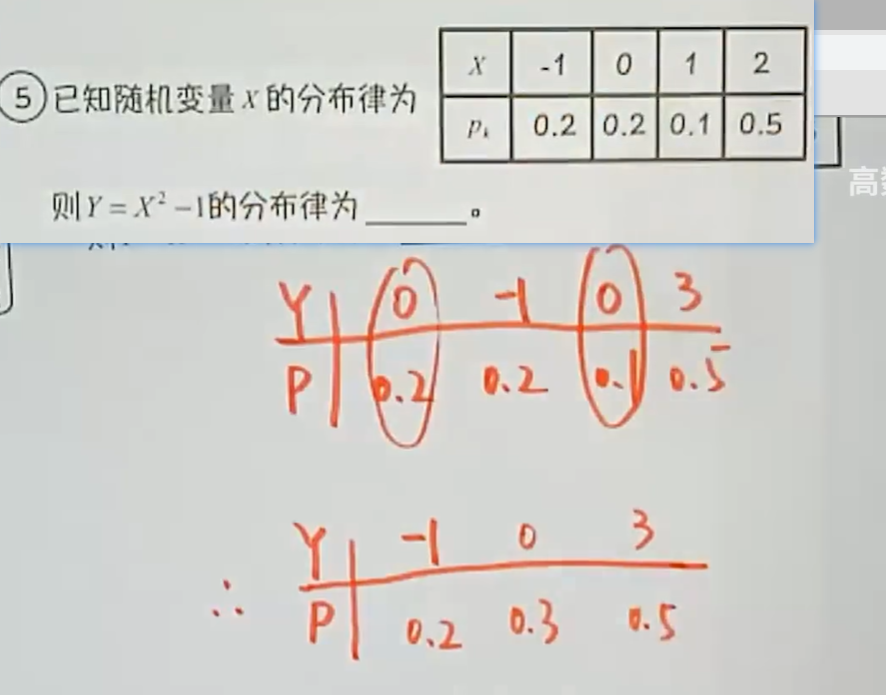 ⑤已知随机变量X的分布律为
X -1 0 1 2
pₖ 0.2 0.2 0.1 0.5
则Y=X²-1的分布律为______。
高
Y 0 -1 0 3
P 0.2 0.2 0.1 0.5
Y -1 0 3
∴ P 0.2 0.3 0.5